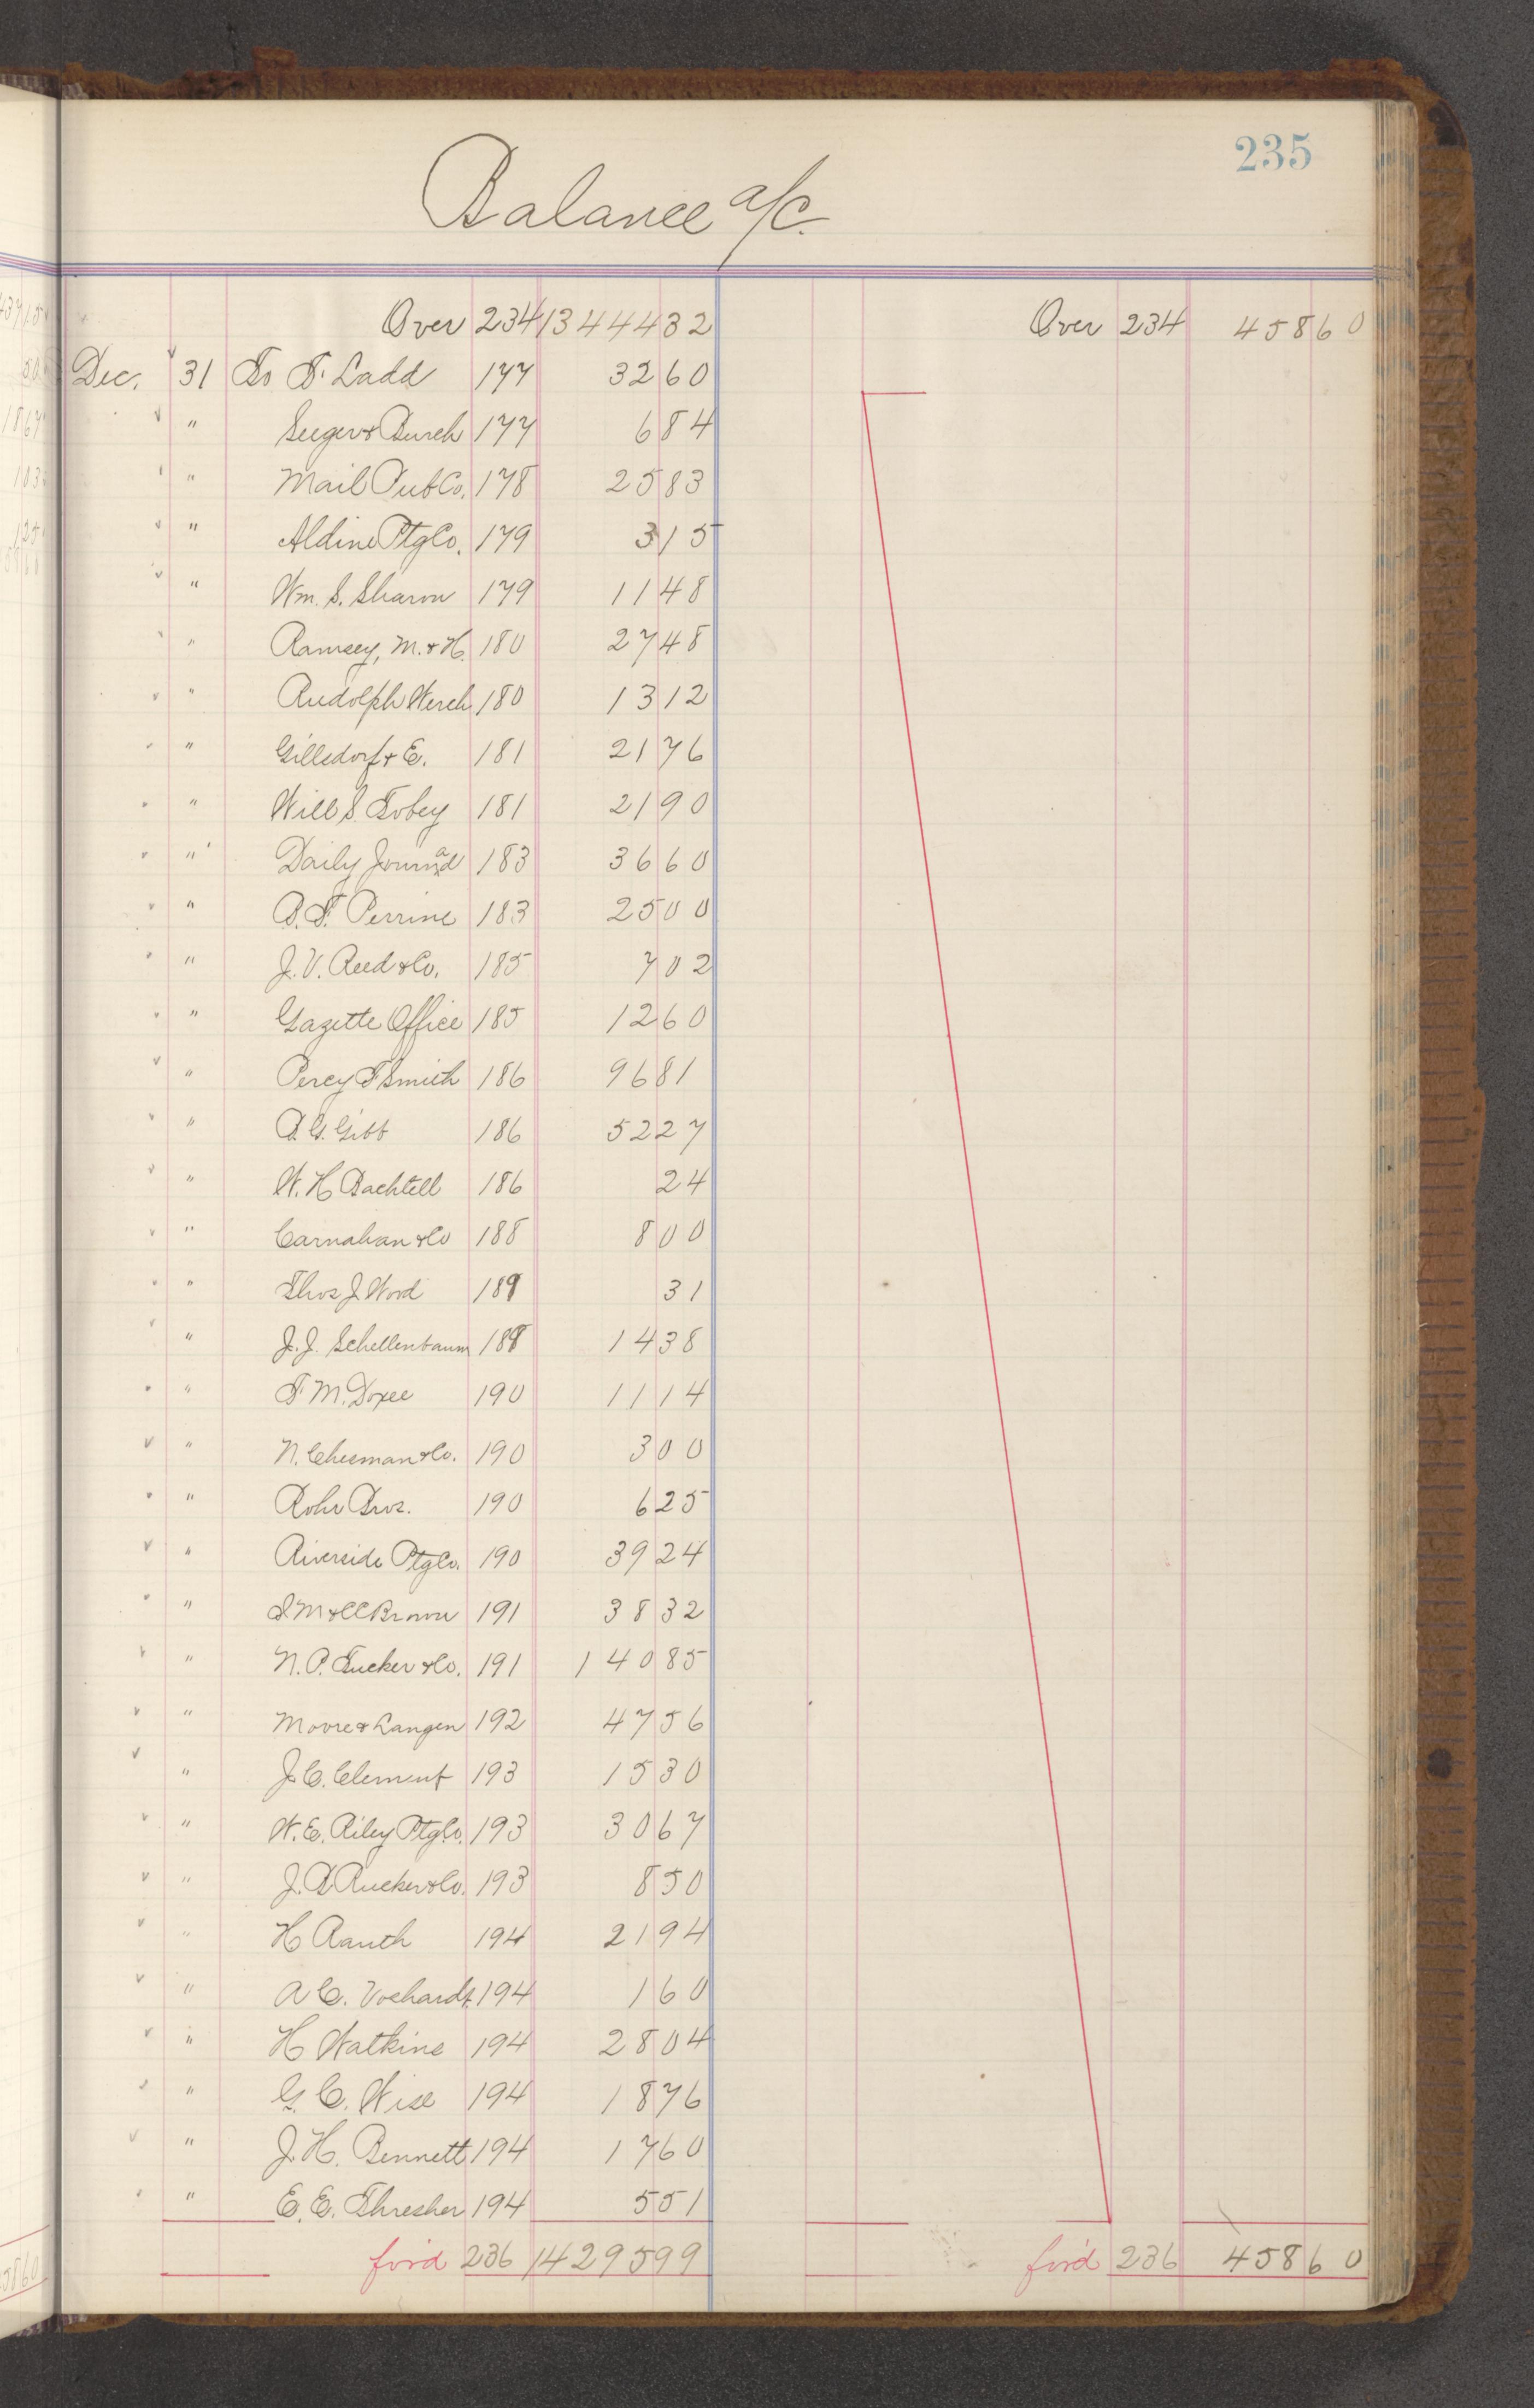 235
Balance a/c.
Over 234 13444 32 Over 234 458 60
Dec. 31 To F. Ladd 177 32 60
" Seeger & Burch 177 6 84
" Mail Pub Co. 178 25 83
" Aldine Ptg Co. 179 3 15
" Wm. S. Sharon 179 11 48
" Ramsey, M. & H. 180 27 48
" Rudolph Werch 180 13 12
" Gillsdorf & E. 181 21 76
" Will S. Tobey 181 21 90
" Daily Journal 183 36 60
" B. F. Perrine 183 25 00
" J. V. Reed & Co. 185 7 02
" Gazette Office 185 12 60
" Percy F Smith 186 96 81
" A. G. Gibb 186 52 27
" W. H Bachtell 186 24
" Carnahan & Co 188 8 00
" Thos J. Wood 189 31
" J. J. Schellenbaum 189 14 38
" F M. Doxee 190 11 14
" N. Cheeman & Co. 190 3 00
" Rohr Bros. 190 6 25
" Riverside Ptg Co. 190 39 24
" S M & CC Brown 191 38 32
" N. P. Tucker & Co. 191 140 85
" Moore & Langen 192 47 56
" J. C. Clement 193 15 30
" W. E. Riley Ptg Co. 193 30 67
" J. A Rucker & Co. 193 8 50
" H Rauth 194 21 94
" A C. Vochardt 194 1 60
" H Watkins 194 28 04
" G. C. Wise 194 18 76
" J. H. Bennett 194 17 60
" E. E. Thresher 194 5 51
for'd 236 14295 99 for'd 236 458 60